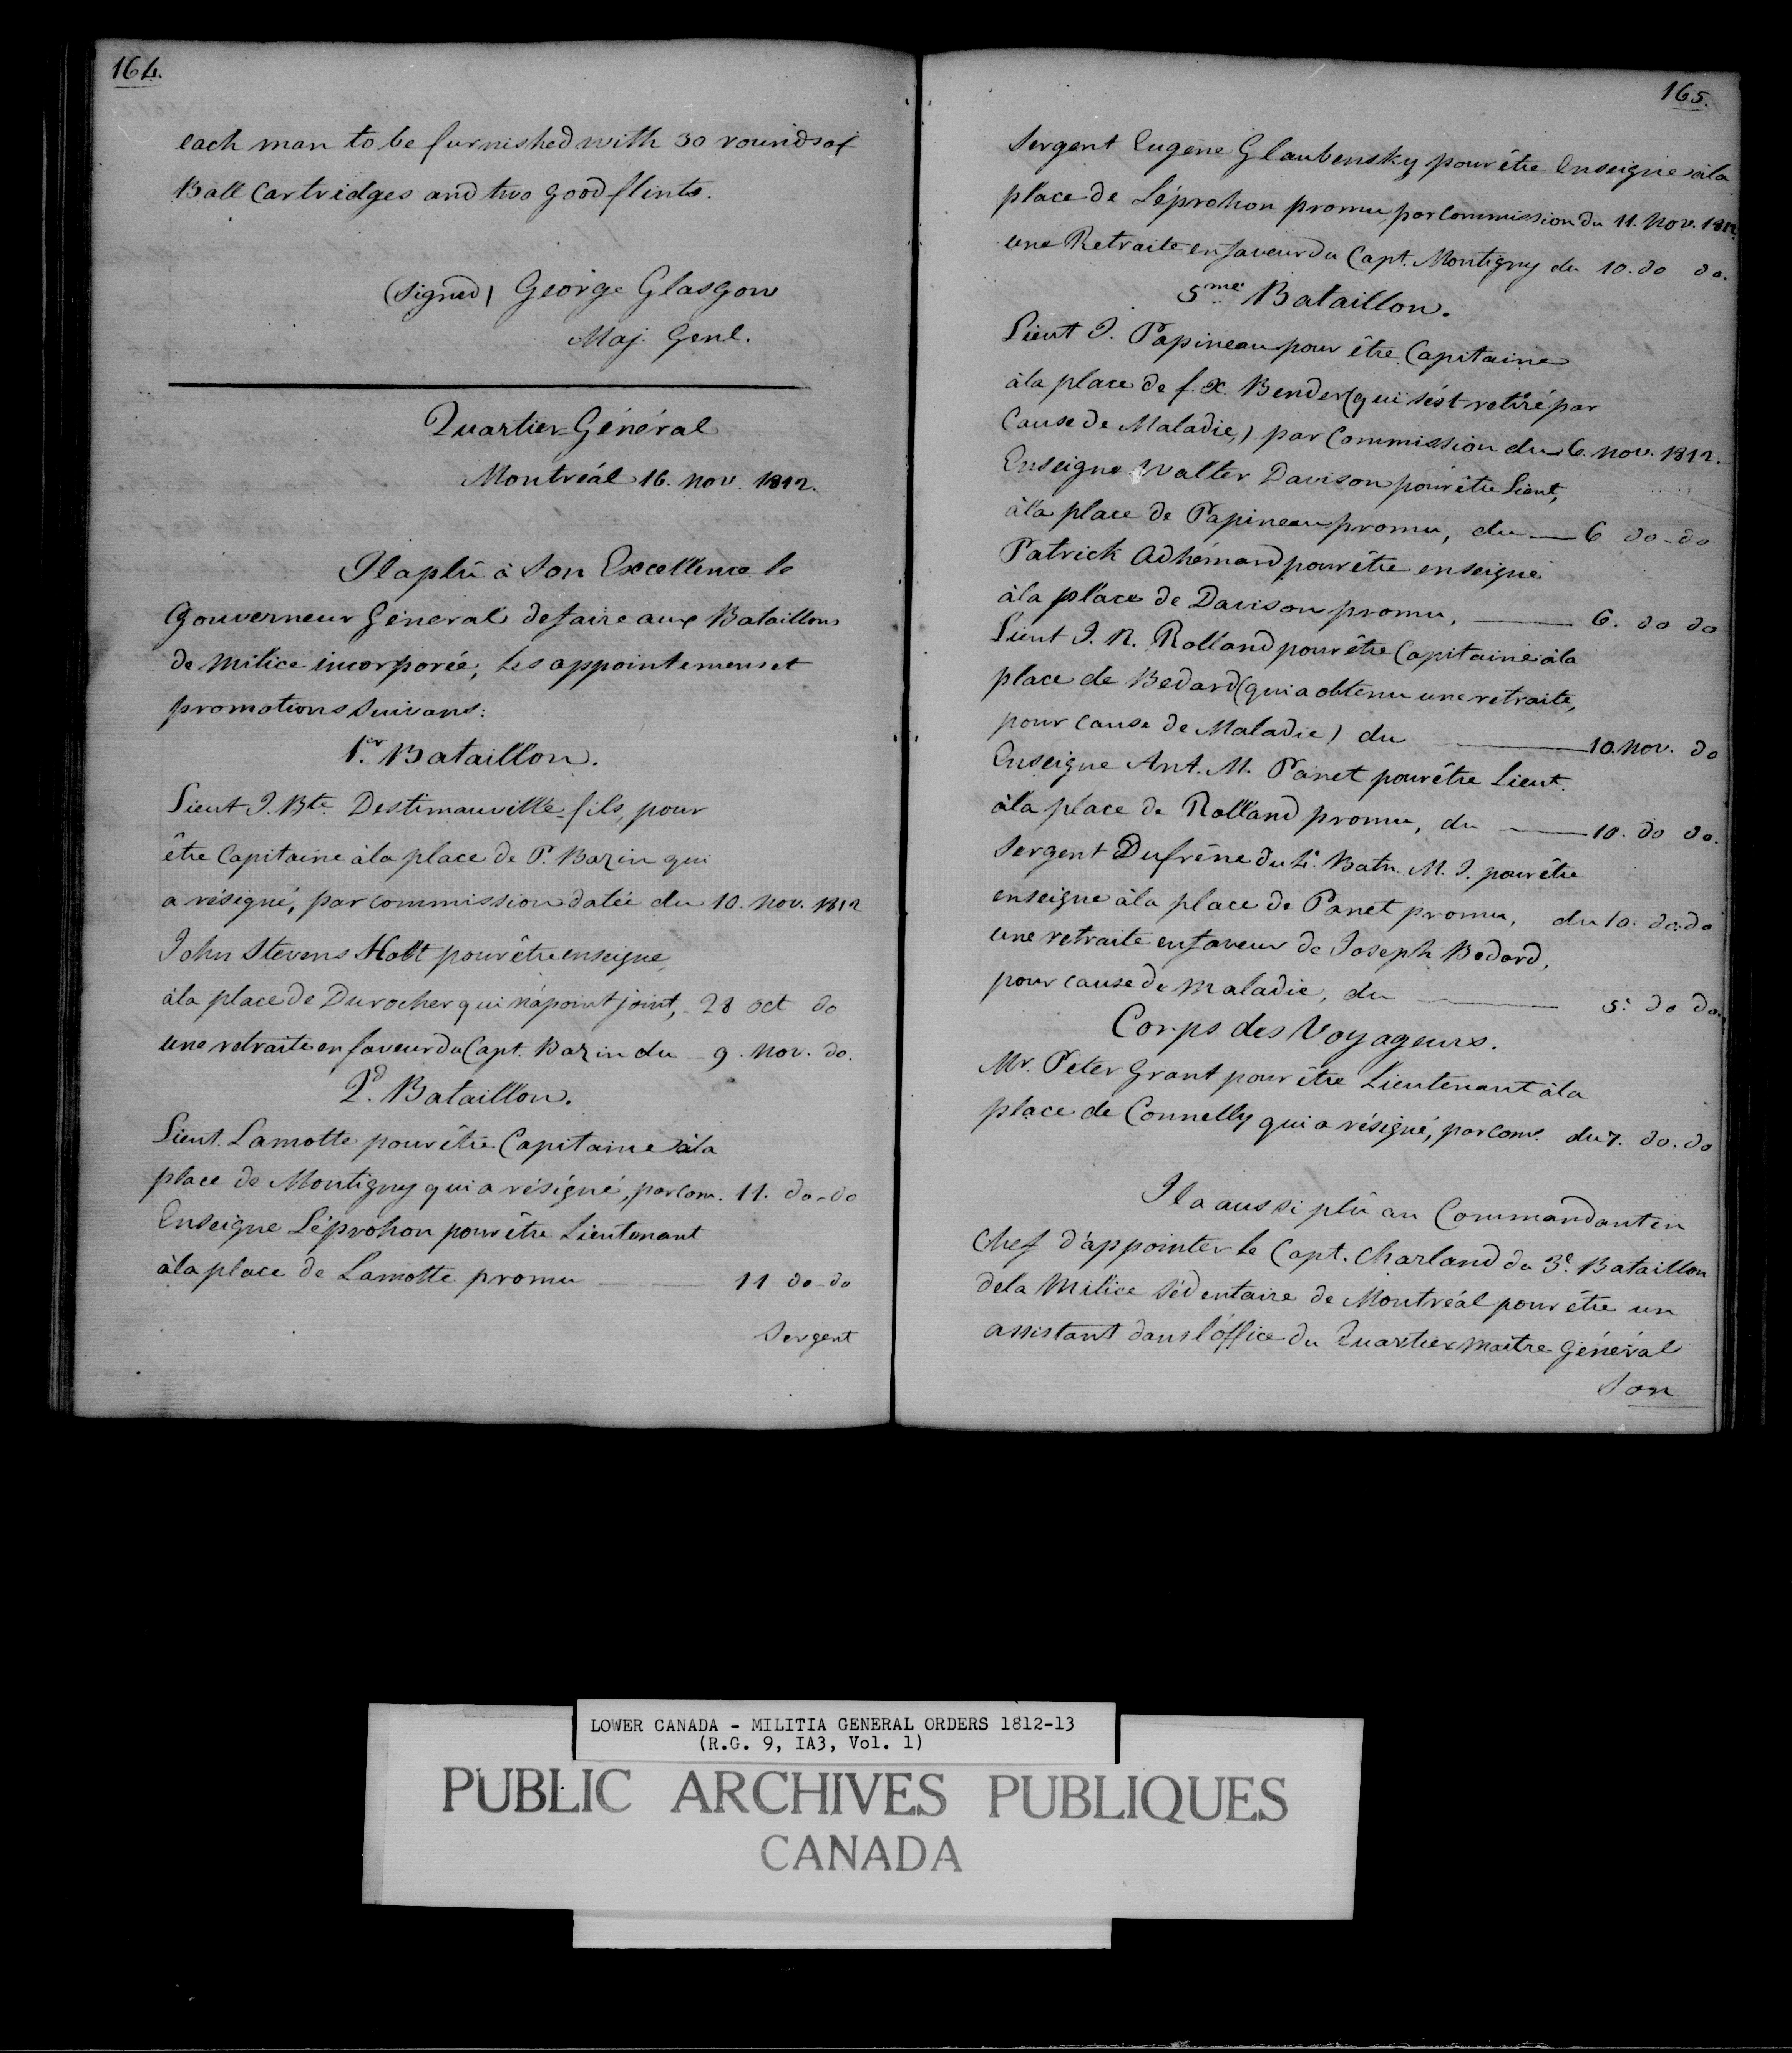 164.
each man to be furnished with 30 rounds of
Ball Cartridges and two good flints.
(Signed) George Glasgow
Maj. Genl.
Quartier Général
Montréal 16. Nov. 1812.
Il a plû à Son Excellence le
Gouverneur Général de faire aux Bataillons
de Milice incorporée, les appointemens et
promotions Suivans:
1er. Bataillon.
Lieut J. Bte. Destimauville fils, pour
être Capitaine à la place de P. Bazin qui
a résigné, par commission datée du 10. Nov. 1812
John Stevens Holt pour être enseigne
à la place de Durocher qui n'a point joint, 28 Oct do
une retraite en faveur du Capt. Bazin du 9. Nov. do.
2d. Bataillon.
Lieut. Lamotte pour être Capitaine à la
place de Montigny qui a résigné, par Com. 11. do-do
Enseigne Léprohon pour être Lieutenant
à la place de Lamotte promu 11 do-do
Sergent
165.
Sergent Eugene Glaubensky pour être Enseigne à la
place de Léprohon promu par Commission du 11. Nov. 1812.
une Retraite en faveur du Capt. Montigny du 10. do do.
5me. Bataillon.
Lieut J. Papineau pour être Capitaine
à la place de f. X. Bender (qui s'est retiré par
Cause de Maladie,) par Commission du 6. Nov. 1812.
Enseigne Walter Davison pour être Lieut,
à la place de Papineau promu, du — 6 do-do
Patrick Adhémard pour être enseigne
à la place de Davison promu, — 6. do do
Lieut J. R. Rolland pour être Capitaine à la
place de Bedard (qui a obtenu une retraite,
pour cause de Maladie) du — 10. Nov. do
Enseigne Ant. M. Panet pour être Lieut.
à la place de Rolland promu, du — 10. do do.
Sergent Dufrêne du 4e. Batn. M. I. pour être
enseigne à la place de Panet promu, du 10. do. do
une retraite en faveur de Joseph Bedard,
pour cause de Maladie, du — 5. do do.
Corps des Voyageurs.
Mr. Peter Grant pour être Lieutenant à la
place de Connelly qui a résigné, par Come. du 7. do. do
Il a aussi plû au Commandant en
Chef d'appointer le Capt. Charland du 3e. Bataillon
de la Milice Sédentaire de Montréal pour être un
assistant dans l'office du Quartier Maitre Général
Son
LOWER CANADA - MILITIA GENERAL ORDERS 1812-13
(R.G. 9, IA3, Vol. 1)
PUBLIC ARCHIVES PUBLIQUES
CANADA